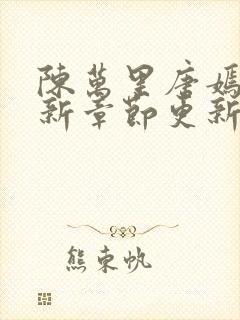 陳萬里唐嫣
新章節更新
熊東帆